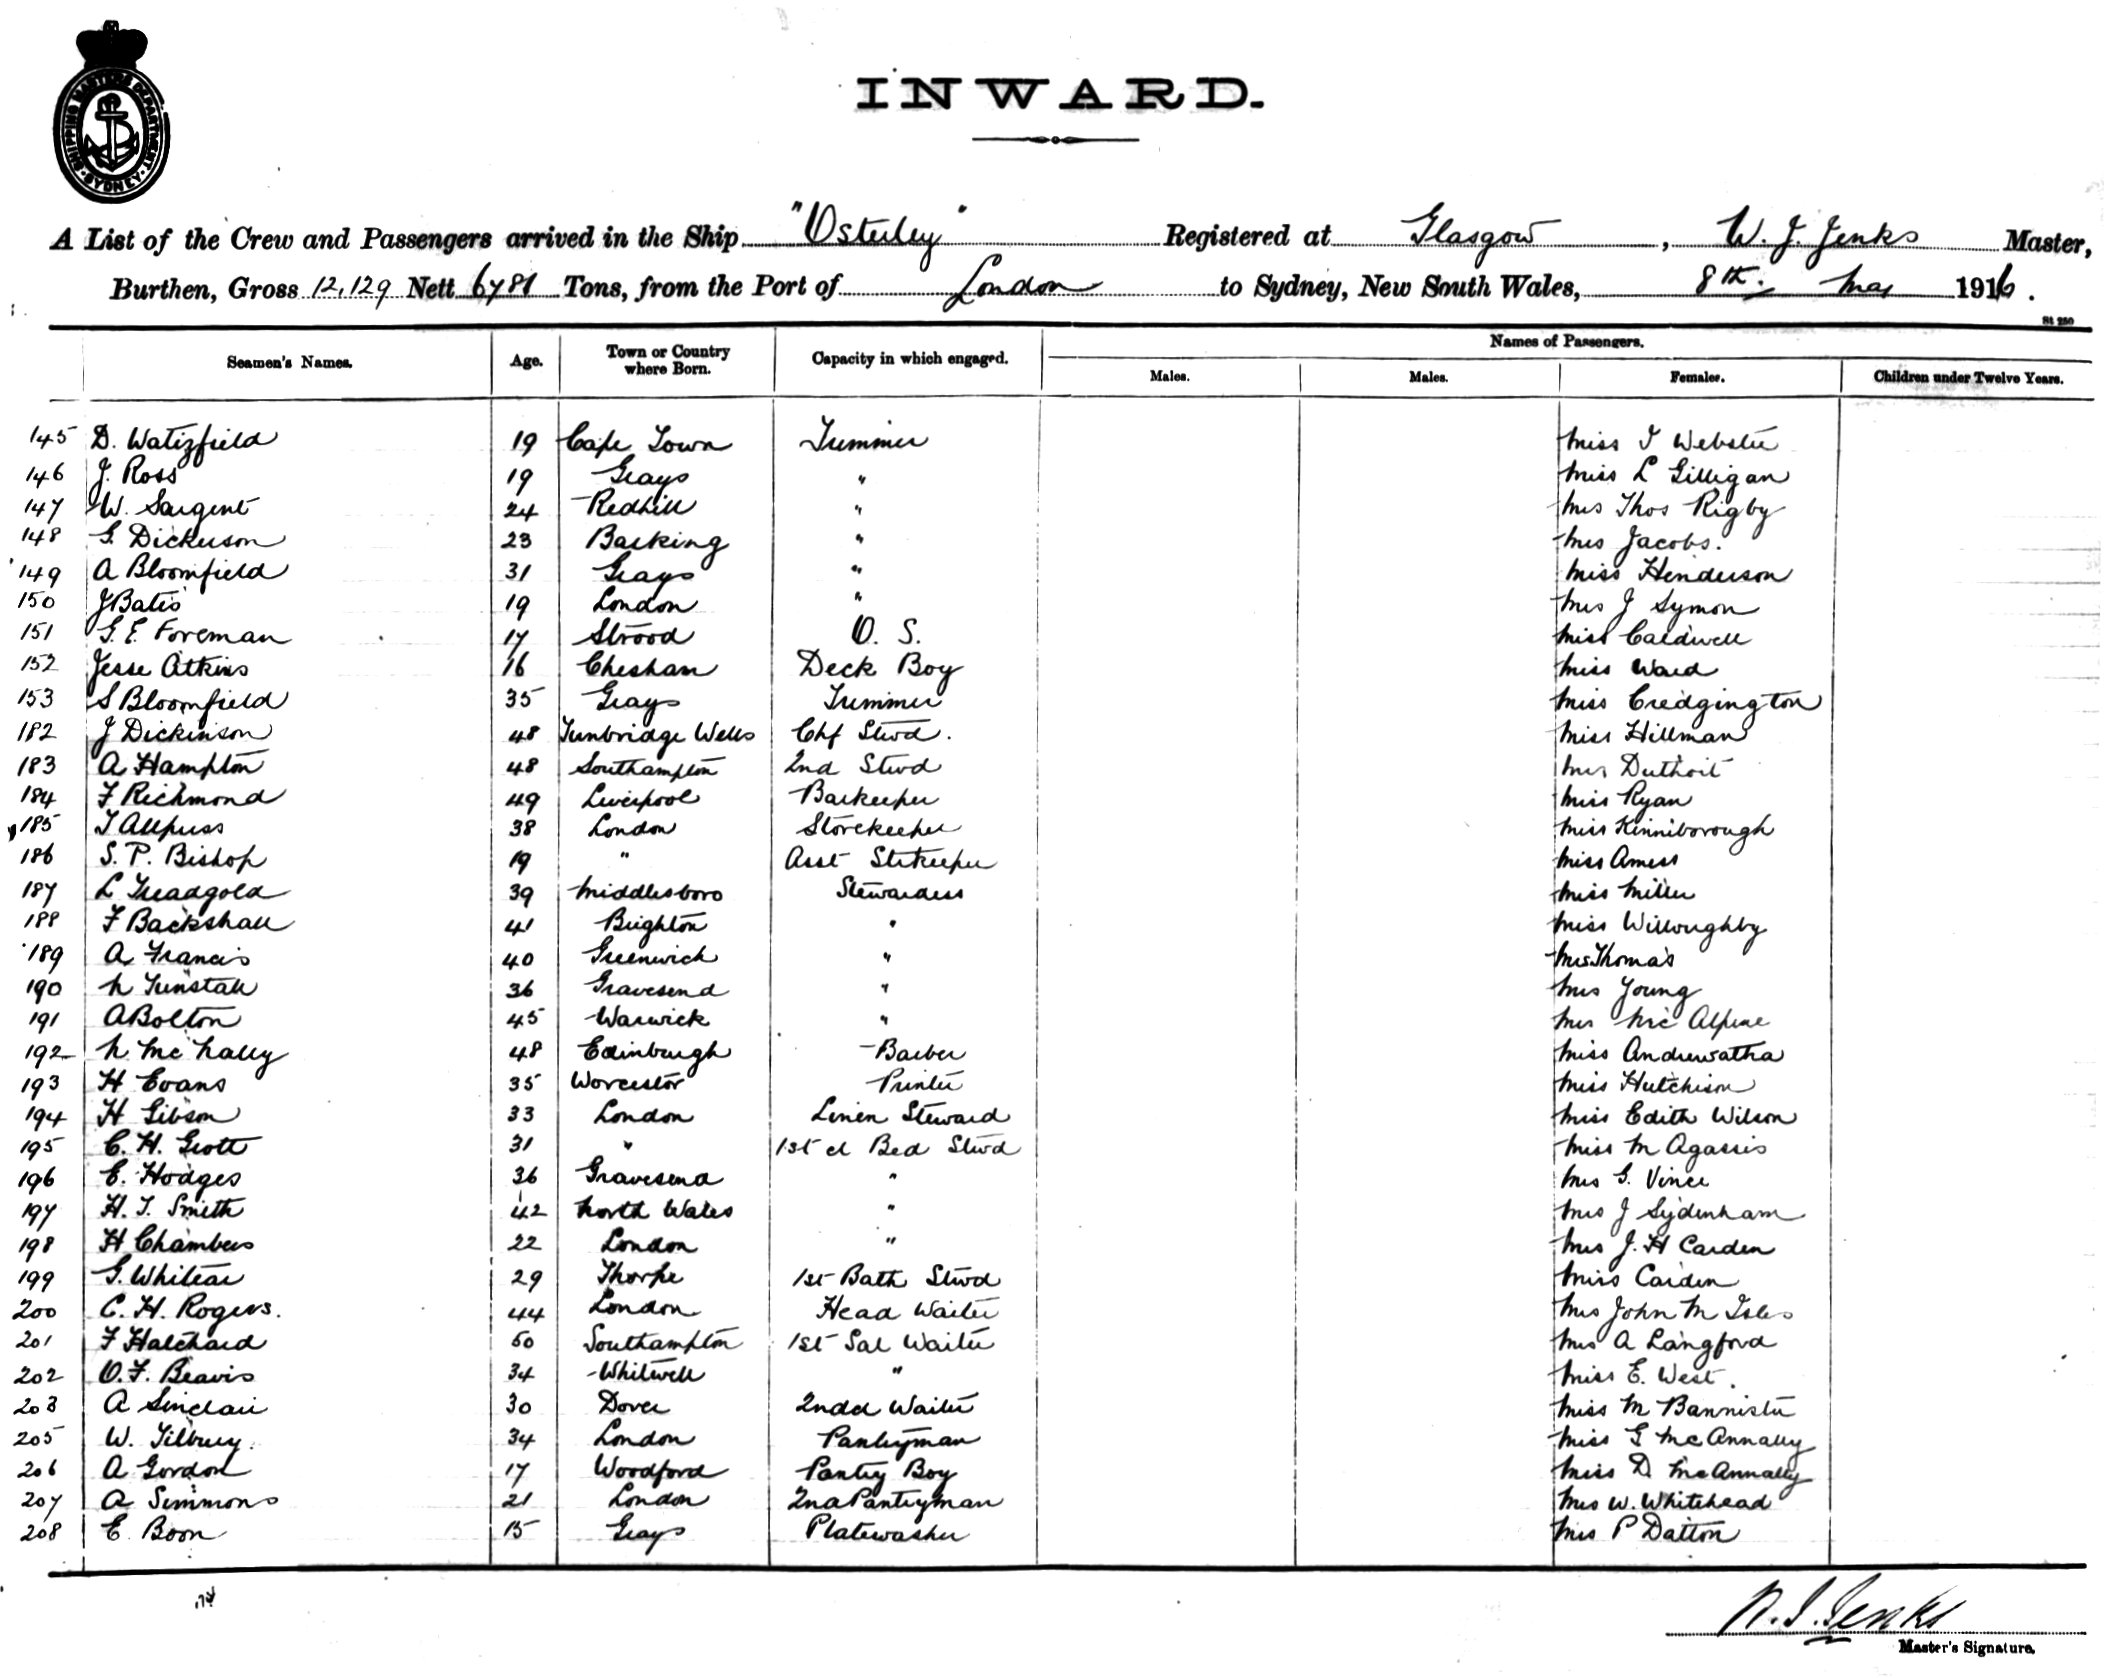 SHIPPING MASTERS DEPARTMENT SYDNEY
INWARD.
A List of the Crew and Passengers arrived in the Ship "Osterley" Registered at Glasgow, W. J. Jenks Master,
Burthen, Gross 12,129 Nett 6781 Tons, from the Port of London to Sydney, New South Wales, 8th. May 1916.
St 250
Seamen's Names. Age. Town or Country where Born. Capacity in which engaged. Names of Passengers.
Males. Males. Females. Children under Twelve Years.
145 D. Watizfield 19 Cape Town Trimmer Miss I Webster
146 J. Ross 19 Grays " Miss L Gilligan
147 W. Sargent 24 Redhill " Mrs Thos Rigby
148 G. Dickerson 23 Barking " Mrs Jacobs.
149 A Bloomfield 31 Grays " Miss Henderson
150 J Bates 19 London " Mrs J Symon
151 G. E. Foreman 17 Strood O. S. Miss Caldwell
152 Jesse Atkins 16 Chesham Deck Boy Miss Ward
153 S Bloomfield 35 Grays Trimmer Miss Credgington
182 J Dickinson 48 Tunbridge Wells Chf Stwd. Miss Hillman
183 A Hampton 48 Southampton 2nd Stwd Mrs Duthoit
184 F Richmond 49 Liverpool Barkeeper Miss Ryan
185 T Allpuss 38 London Storekeeper Miss Kinniborough
186 S. P. Bishop 19 " Asst Strkeeper Miss Amess
187 L Treadgold 39 Middlesboro Stewardess Miss Miller
188 F Backshall 41 Brighton " Miss Willoughby
189 A Francis 40 Greenwich " Mrs Thomas
190 N Tunstall 36 Gravesend " Mrs Young
191 A Bolton 45 Warwick " Mrs McAlpine
192 N McNally 48 Edinburgh Barber Miss Andrewartha
193 H Evans 35 Worcester Printer Miss Hutchison
194 H Gibson 33 London Linen Steward Miss Edith Wilson
195 C. H. Grott 31 " 1st cl Bed Stwd Miss M Agassis
196 E. Hodges 36 Gravesend " Mrs G. Vince
197 H. T. Smith 42 North Wales " Mrs J Sydenham
198 H Chambers 22 London " Mrs J. H Carden
199 G. Whitear 29 Thorpe 1st Bath Stwd Miss Carden
200 C. H. Rogers. 44 London Head Waiter Mrs John M Isles
201 F Hatchard 50 Southampton 1st Sal Waiter Mrs A Langford
202 O. F. Beavis 34 Whitwell " Miss E. West.
203 A Sinclair 30 Dover 2nd cl Waiter Miss M Bannister
205 W. Tilbury. 34 London Pantryman Miss G McAnnally
206 A Gordon 17 Woodford Pantry Boy Miss D McAnnally
207 A Simmons 21 London 2nd Pantryman Mrs W. Whitehead
208 E. Boon 15 Grays Platewasher Mrs P Datton
W. J. Jenks
Master's Signature.